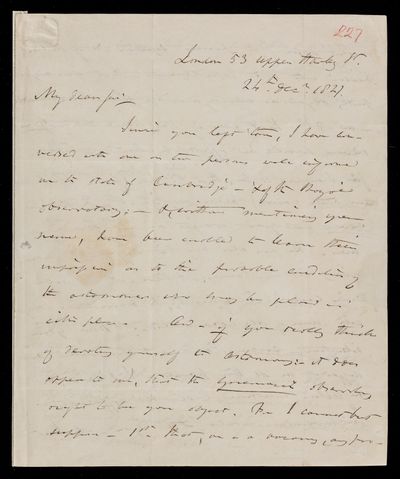 227
London 53 Upper Harley St.
24th Decr. 182
My dear Sir
Since you left town, I have con-
versed with one or two persons well informed
on the state of Cambridge - & of the Royal
Observatory; - & without mentioning your
name, have been enabled to learn their
impression as to the probable condition of
the astronomer who may be placed in
either place. And - if you really think
of devoting yourself to astronomy - it does
appear to me, that the Greenwich observatory
ought to be your object. For I cannot but
suppose - 1st. that, on a vacancy, any